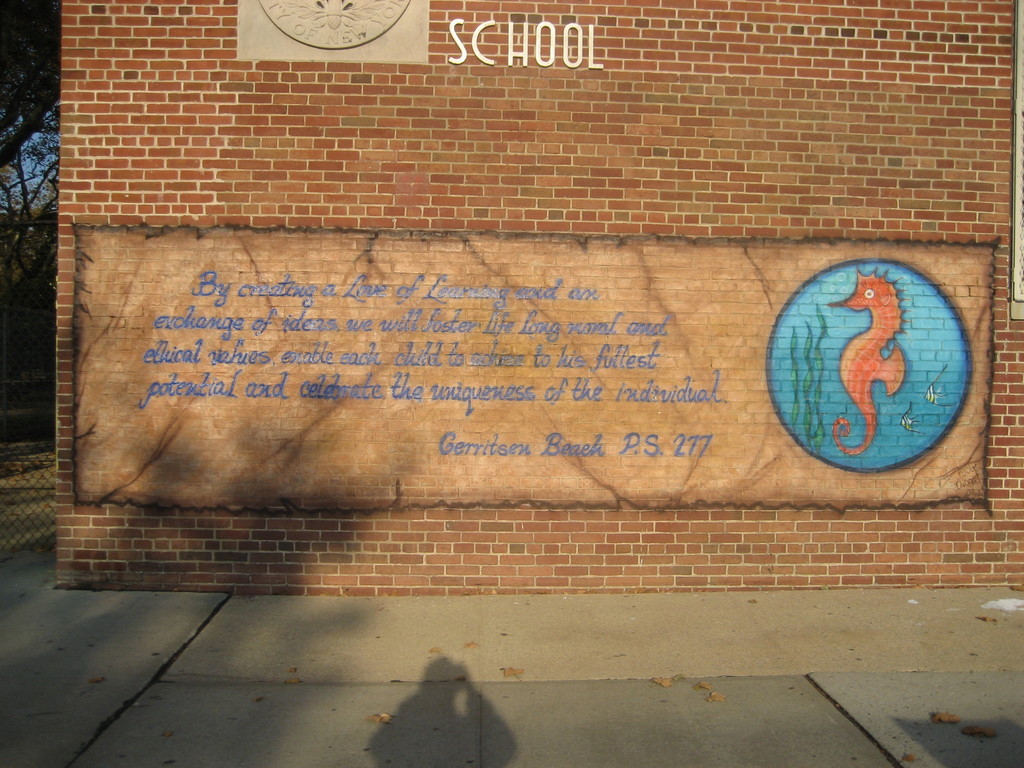 TY OF NEW YOR
SCHOOL
By creating a Love of Learning and an
exchange of ideas, we will foster life long moral and
ethical values, enable each child to achieve to his fullest
potential and celebrate the uniqueness of the individual.
Gerritsen Beach P.S. 277